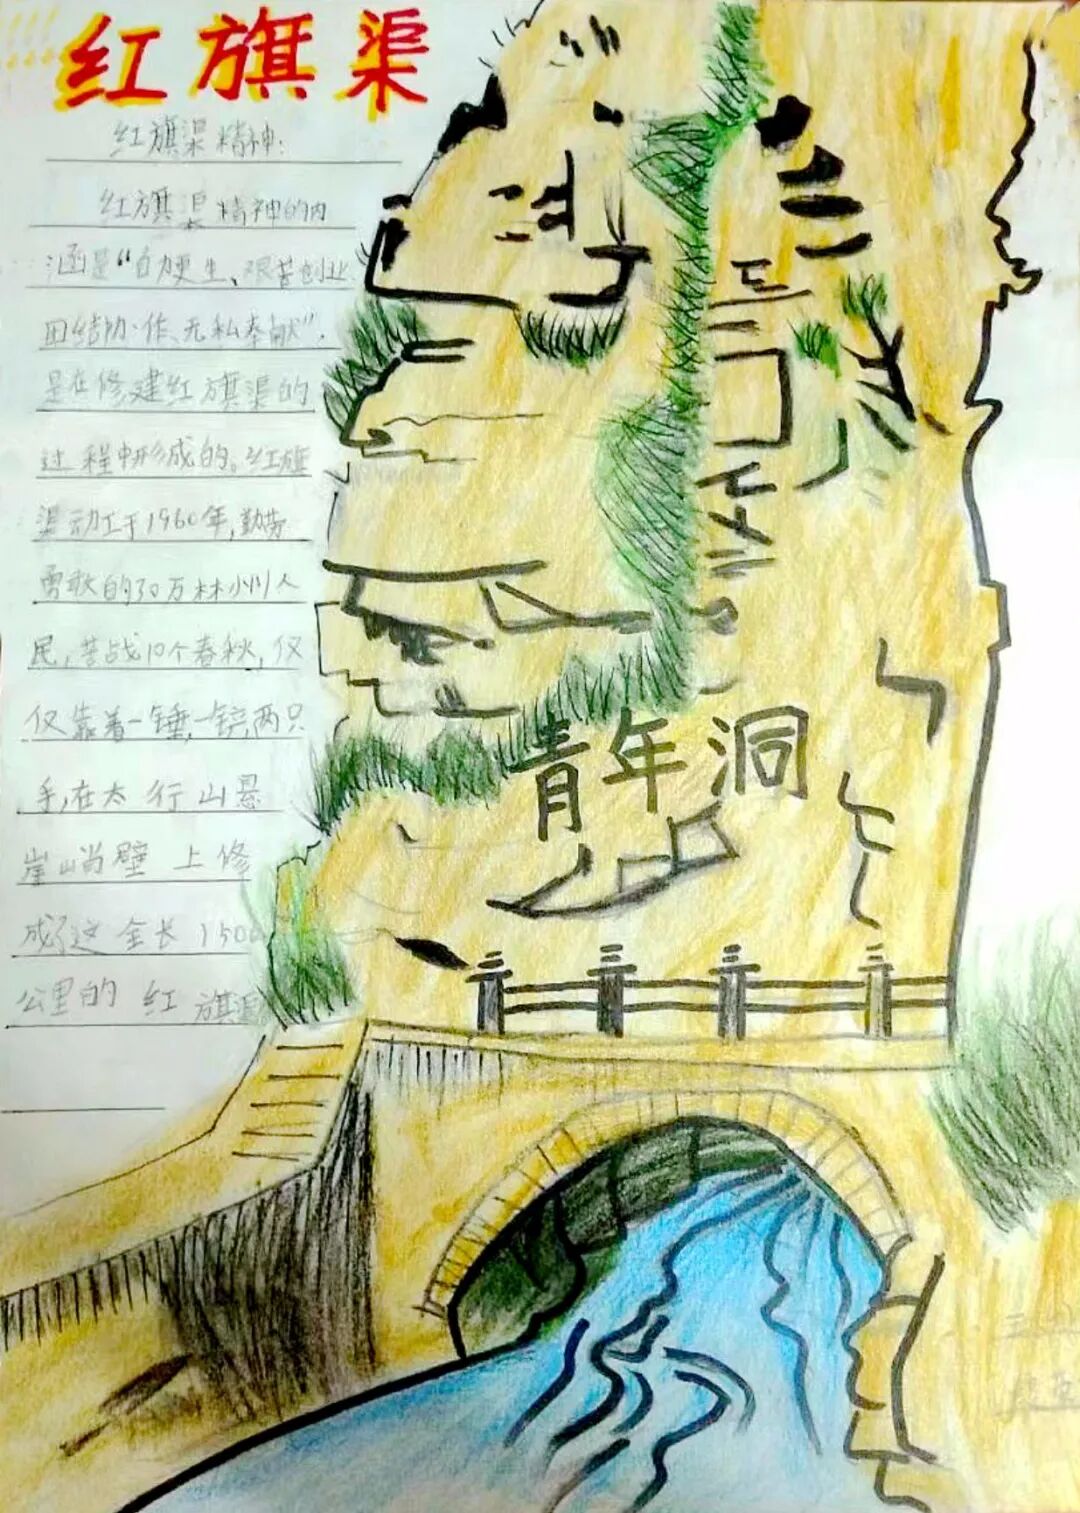 红旗渠
红旗渠精神:
红旗渠精神的内
涵是“自力更生、艰苦创业
团结协作、无私奉献”,
是在修建红旗渠的
过程中形成的。红旗
渠动工于1960年,勤劳
勇敢的30万林州人
民,苦战10个春秋,仅
仅靠着一锤,一铲,两只
手,在太行山悬
崖峭壁上修
成了这全长1500
公里的红旗渠
青年洞